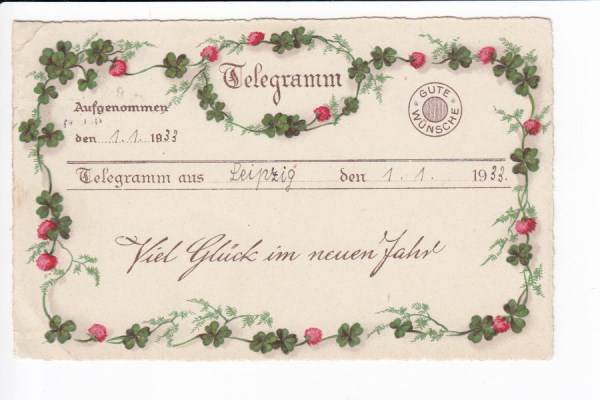 Telegramm
Aufgenommen
den 1. 1. 1933
GUTE WÜNSCHE
Telegramm aus Leipzig den 1. 1. 1933.
Viel Glück im neuen Jahr